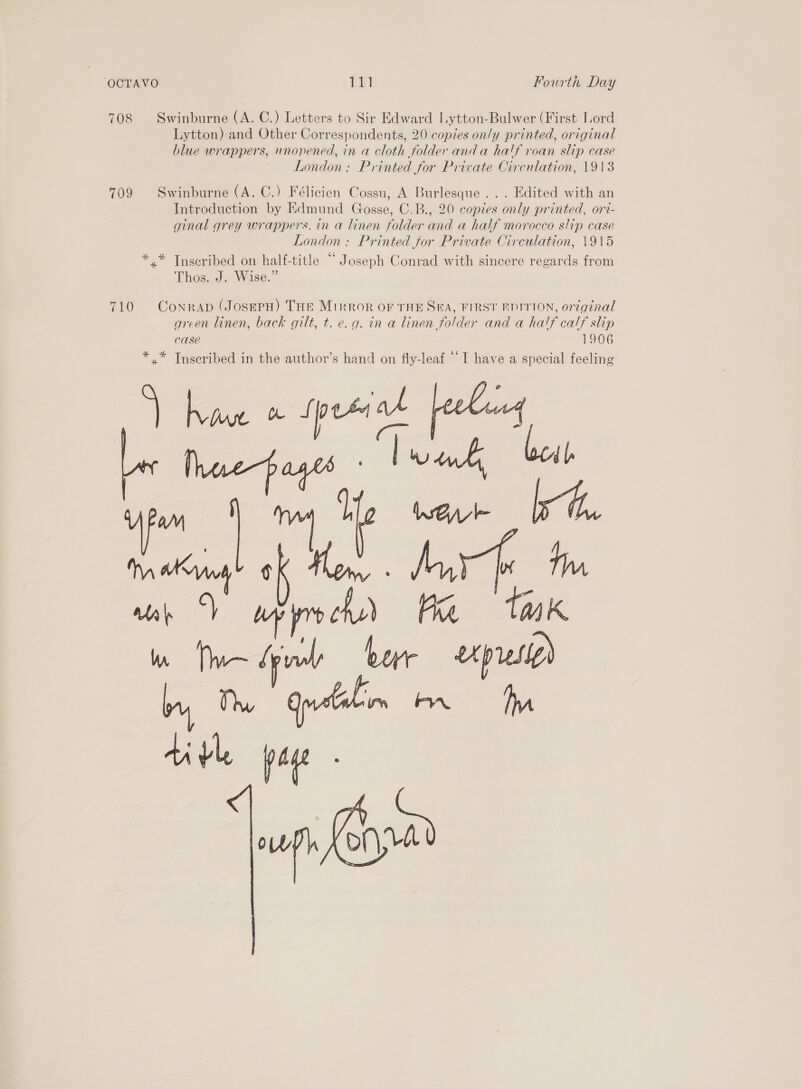 OCTAVO 111 Fourth Day
708 Swinburne (A. C.) Letters to Sir Edward Lytton-Bulwer (First Lord
Lytton) and Other Correspondents, 20 copies only printed, original
blue wrappers, unopened, in a cloth folder and a half roan slip case
London: Printed for Private Circulation, 1913
709 Swinburne (A. C.) Félicien Cossu, A Burlesque ... Edited with an
Introduction by Edmund Gosse, C.B., 20 copies only printed, ori-
ginal grey wrappers, in a linen folder and a half morocco slip case
London: Printed for Private Circulation, 1915
*** Inscribed on half-title “Joseph Conrad with sincere regards from
Thos. J. Wise.”
710 CONRAD (JOSEPH) THE MIRROR OF THE SEA, FIRST EDITION, original
green linen, back gilt, t. e. g. in a linen folder and a half calf slip
case 1906
*** Inscribed in the author's hand on fly-leaf “I have a special feeling
I have a special feeling
for these pages. Twenty best
years of my life went to the
making of them. And for the
rest I approched the task
in the spirit best expressed
by the quotation on the
title page.
Joseph Conrad